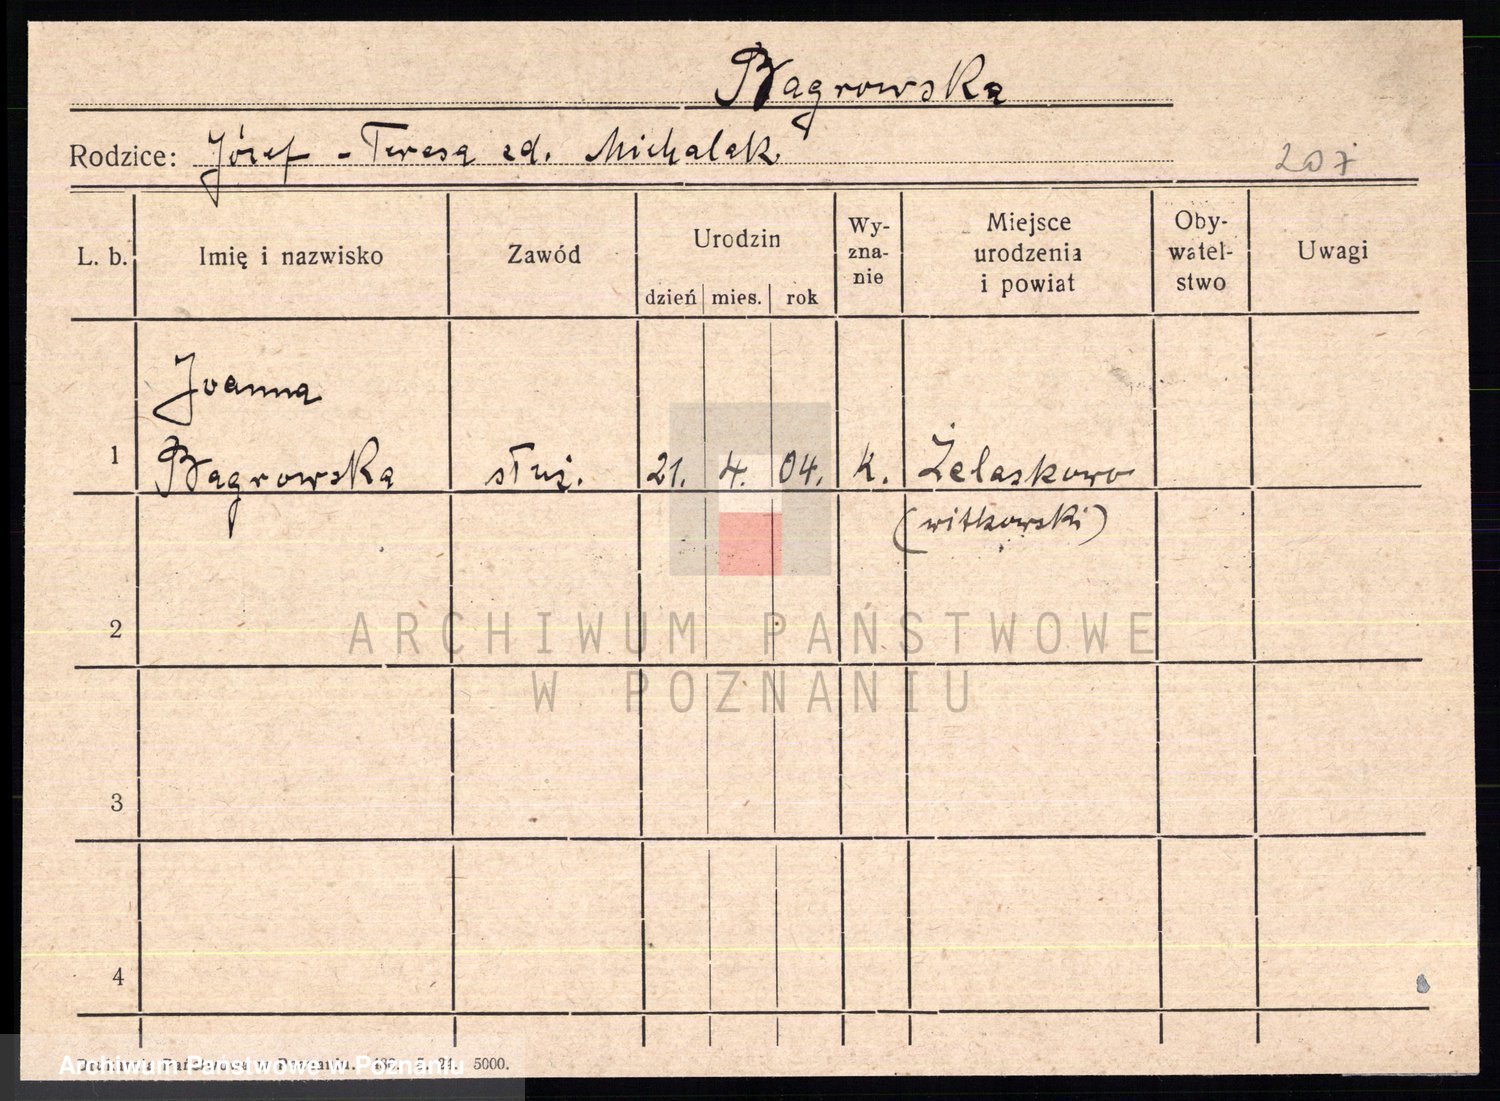 Bagrowska
Rodzice: Józef - Teresa zd. Michalak
207
L. b.
Imię i nazwisko
Zawód
Urodzin
dzień mies. rok
Wy-
zna-
nie
Miejsce
urodzenia
i powiat
Oby-
watel-
stwo
Uwagi
Joanna
1 Bagrowska służ. 21. 4. 04. k. Żelaskowo
(witkowski)
2
ARCHIWUM PAŃSTWOWE
W POZNANIU
3
4
Archiwum Państwowe w Poznaniu
5. 24. 5000.